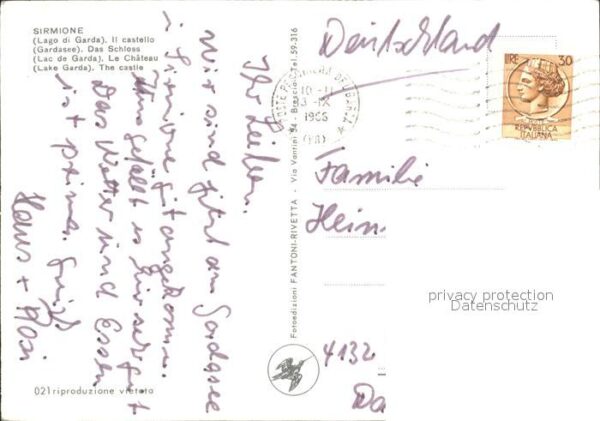 SIRMIONE
(Lago di Garda). Il castello
(Gardasee). Das Schloss
(Lac de Garda). Le Château
(Lake Garda). The castle
Ihr Lieben.
Wir sind jetzt am Gardasee
in Sirmione gut angekommen.
Uns gefällt es hier sehr gut
Das Wetter und Essen
ist prima. Gruß
Hans + Rosi
021 riproduzione vietata
Fotoedizioni FANTONI-RIVETTA - Via Vantini 54 - Brescia-Tel.59.316
Deutschland
10-11
IX
1966
LIRE 30
REPVBBLICA
ITALIANA
Familie
Hein
privacy protection
Datenschutz
4132
Da